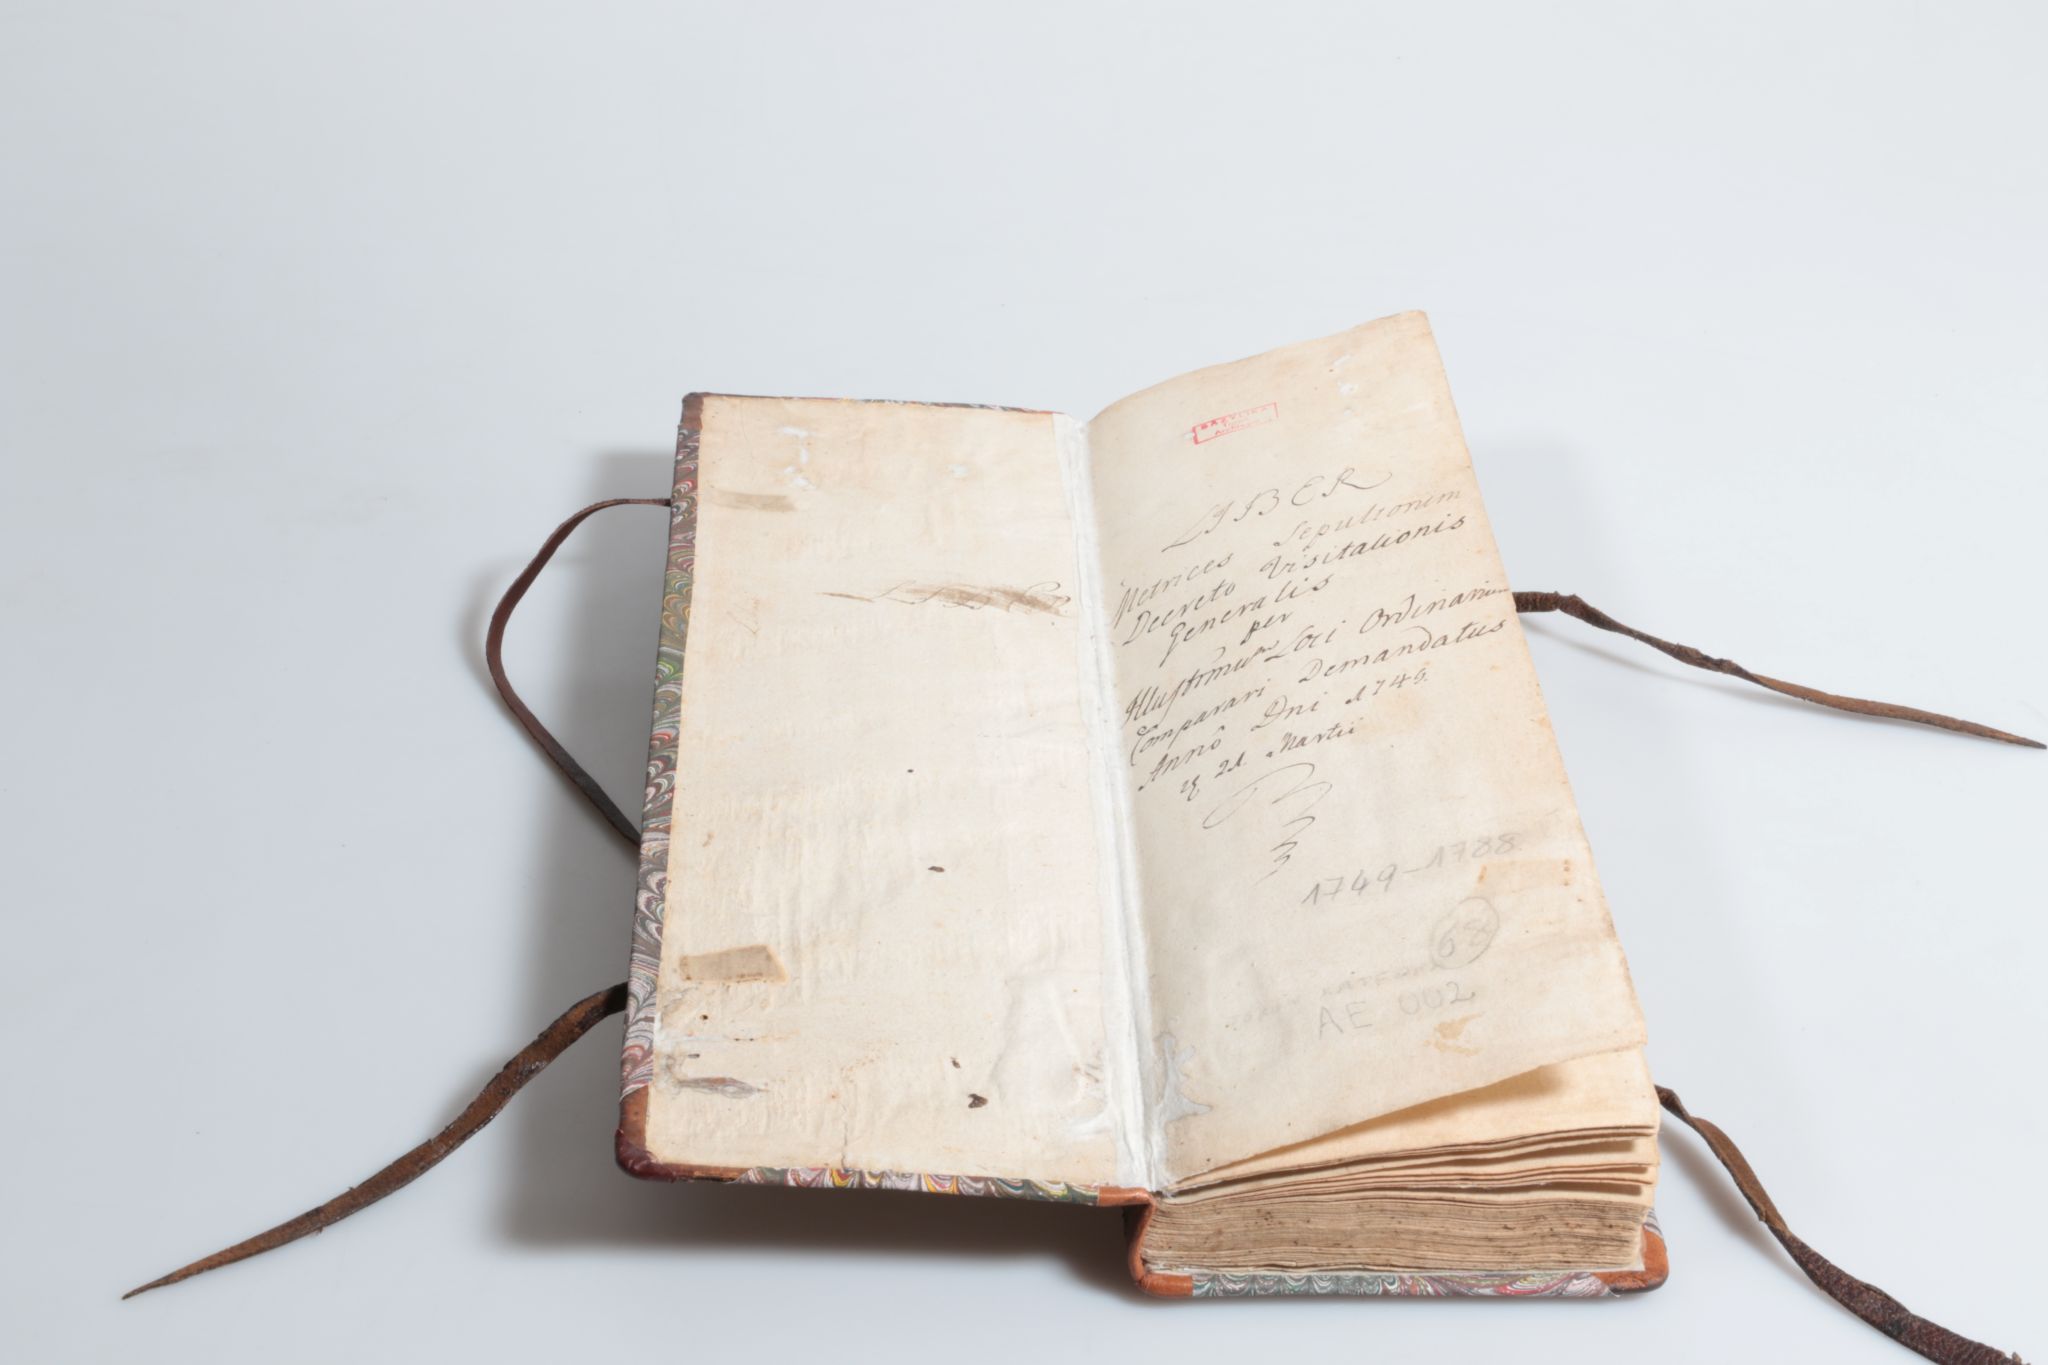 BAZYLIKA
LIBER
LIBER
Metrices Sepultorum
Decreto Visitationis
Generalis
per
Illustrimum Loci Ordinarium
Comparari Demandatus
Anno Dni 1749.
21. Martii
1749-1788
68
AE 002